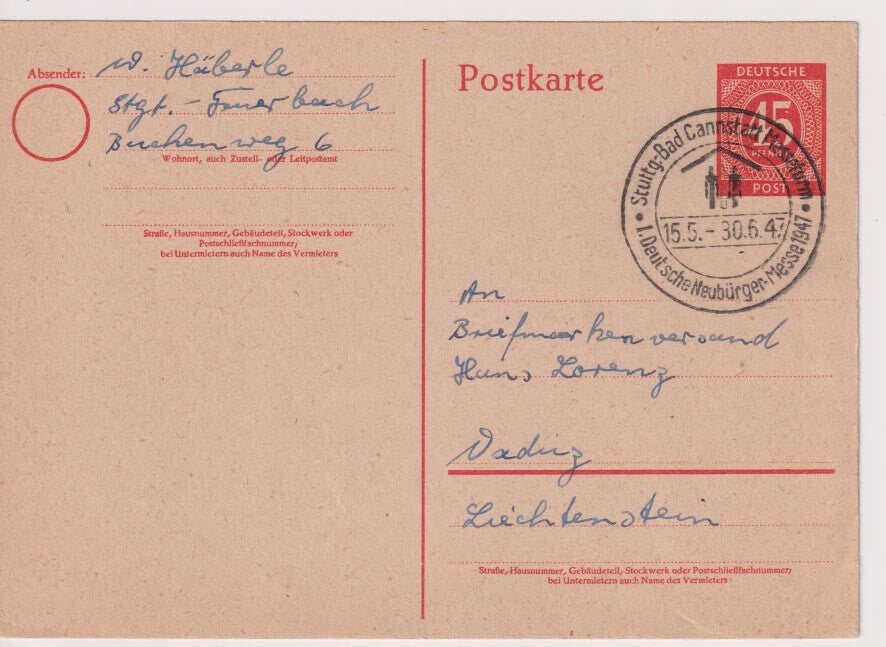 Absender: W. Häberle
Stgt. - Feuerbach
Buchenweg 6
Wohnort, auch Zustell- oder Leitpostamt
Straße, Hausnummer, Gebäudeteil, Stockwerk oder
Postschließfachnummer;
bei Untermietern auch Name des Vermieters
Postkarte
DEUTSCHE
45
PFENNIG
POST
Stuttg-Bad Cannstatt
15.5. - 30.6.47
1. Deutsche Neubürger-Messe 1947
An
Briefmarkenversand
Hans Lorenz
Vaduz
Liechtenstein
Straße, Hausnummer, Gebäudeteil, Stockwerk oder Postschließfachnummer;
bei Untermietern auch Name des Vermieters